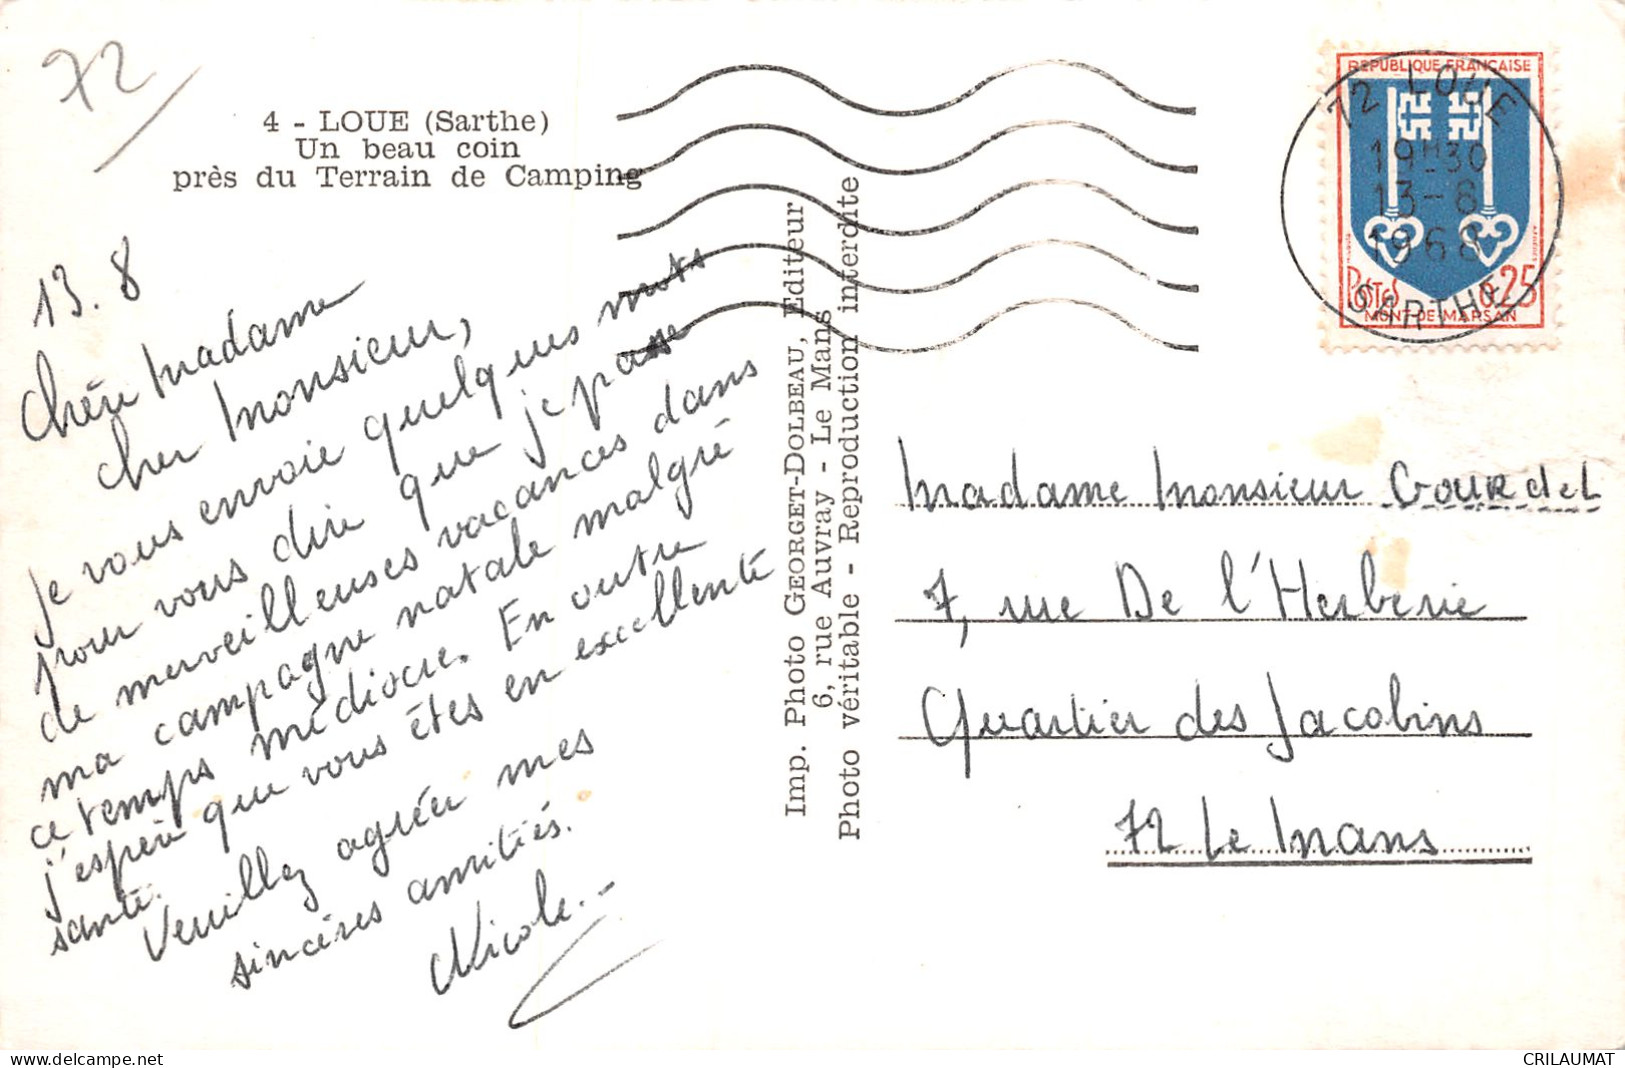 72
4 - LOUE (Sarthe)
Un beau coin
près du Terrain de Camping
13.8
Chère Madame
cher Monsieur,
Je vous envoie quelques mots
pour vous dire que je passe
de merveilleuses vacances dans
ma campagne natale malgré
ce temps médiocre. En outre
j'espère que vous êtes en excellente
santé.
Veuillez agréer mes
sincères amitiés.
Nicole.
Imp. Photo GEORGET-DOLBEAU, Editeur
6, rue Auvray - Le Mans
Photo véritable - Reproduction interdite
REPUBLIQUE FRANÇAISE
72 LOUE
19H30
13-8
1968
SARTHE
POSTES
0,25
MONT-DE-MARSAN
Madame Monsieur Gourdel
7, rue De l'Herberie
Quartier des Jacobins
72 Le Mans
delcampe.net
CRILAUMAT